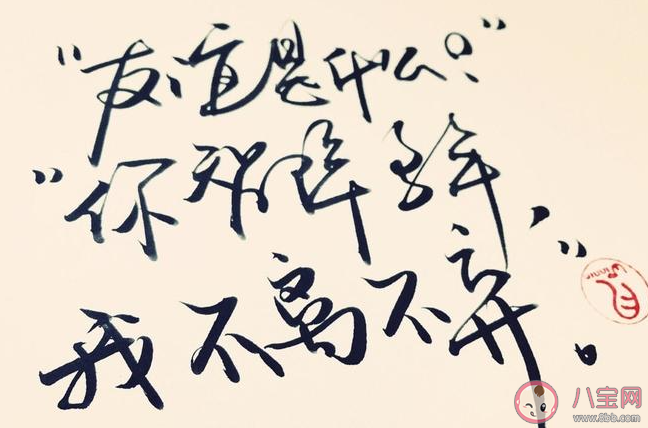 “友谊是什么？”
“你
我不离不弃。”
八宝网
www.8bb.com